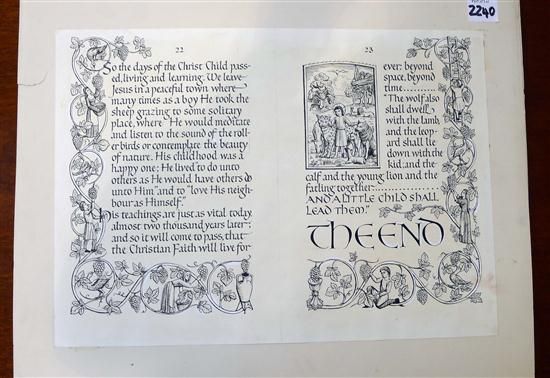 2240
22
So the days of the Christ Child pass-
ed, living and learning. We leave
Jesus in a peaceful town where
many times as a boy He took the
sheep grazing to some solitary
place, where "He would meditate
and listen to the sound of the roll-
er birds or contemplate the beauty
of nature. His childhood was a
happy one; He lived to do unto
others as He would have others do
unto Him", and to "love His neigh-
bour as Himself."
is teachings are just as vital today,
almost two thousand years later;
and so it will come to pass, that
the Christian Faith will live for
23
ever: beyond
space, beyond
time.........
"The wolf also
shall dwell
with the lamb
and the leop-
ard shall lie
down with the
kid; and the
calf and the young lion and the
fatling together:............
AND A LITTLE CHILD SHALL
LEAD THEM."
THE END